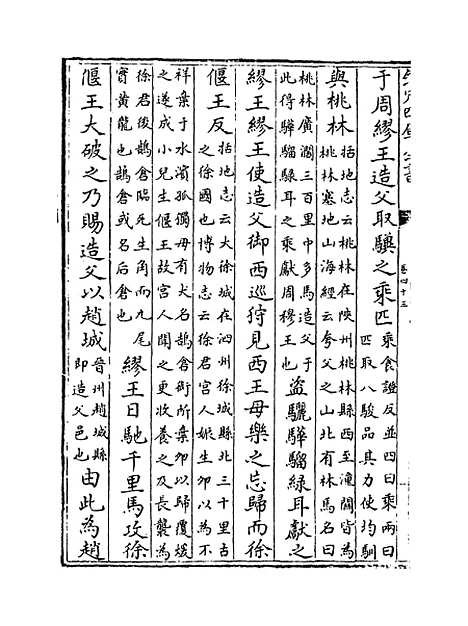 欽定四庫全書
卷四十三
于周繆王造父取驥之乘匹
乘食證反並四曰乘兩曰
匹取八駿品其力使均馴
與桃林
括地志云桃林在陜州桃林縣西至潼關皆為
桃林塞地山海經云夸父之山北有林馬名曰
桃林廣闊三百里中多馬造父于
此得驊騮騄耳之乘獻周穆王也
盜驪驊騮綠耳獻之
繆王繆王使造父御西巡狩見西王母樂之忘歸而徐
偃王反
括地志云大徐城在泗州徐城縣北三十里古
之徐國也博物志云徐君宮人娠生卵以為不
祥棄于水濱孤獨母有犬名鵠倉銜所棄卵以歸覆煖
之遂成小兒生偃王故宮人聞之更收養之及長襲為
徐君後鵠倉臨死生角而九尾
實黃龍也鵠倉或名后倉也
繆王日馳千里馬攻徐
偃王大破之乃賜造父以趙城
晉州趙城縣
即造父邑也
由此為趙